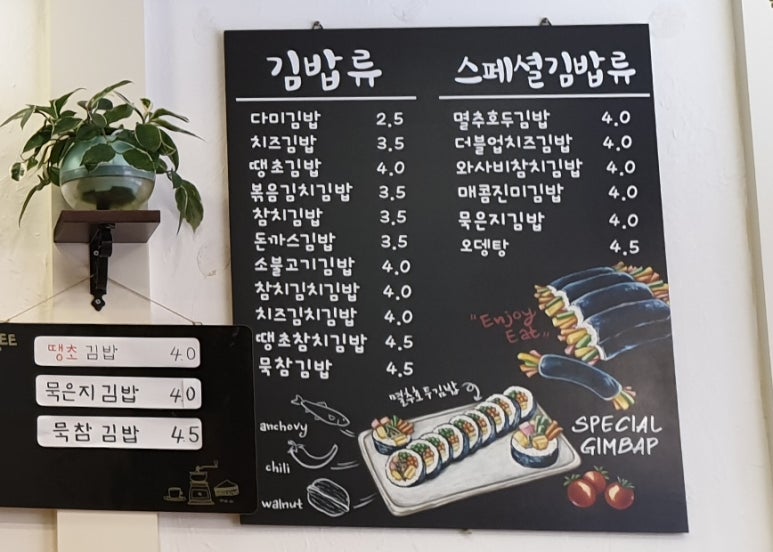 김밥류
다미김밥 2.5
치즈김밥 3.5
땡초김밥 4.0
볶음김치김밥 3.5
참치김밥 3.5
돈까스김밥 3.5
소불고기김밥 4.0
참치김치김밥 4.0
치즈김치김밥 4.0
땡초참치김밥 4.5
묵참김밥 4.5
스페셜김밥류
멸추호두김밥 4.0
더블업치즈김밥 4.0
와사비참치김밥 4.0
매콤진미김밥 4.0
묵은지김밥 4.0
오뎅탕 4.5
"Enjoy
Eat"
멸추호두김밥
anchovy
chili
walnut
SPECIAL
GIMBAP
땡초 김밥 4.0
묵은지 김밥 4.0
묵참 김밥 4.5